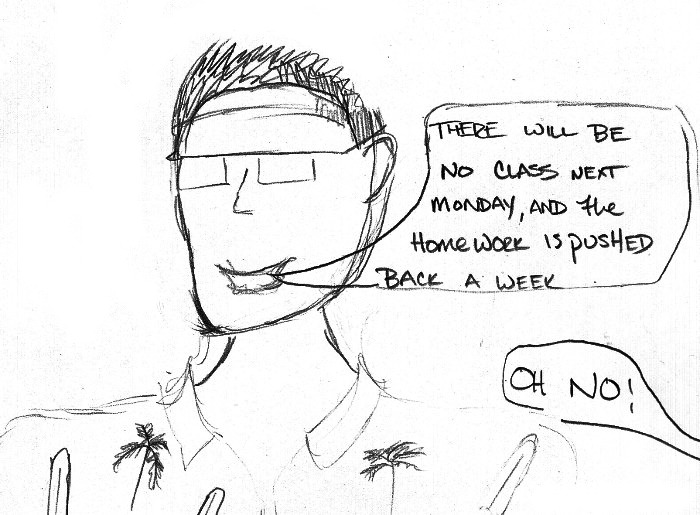 THERE WILL BE
NO CLASS NEXT
MONDAY, AND the
HOMEWORK IS PUSHED
BACK A WEEK
OH NO!